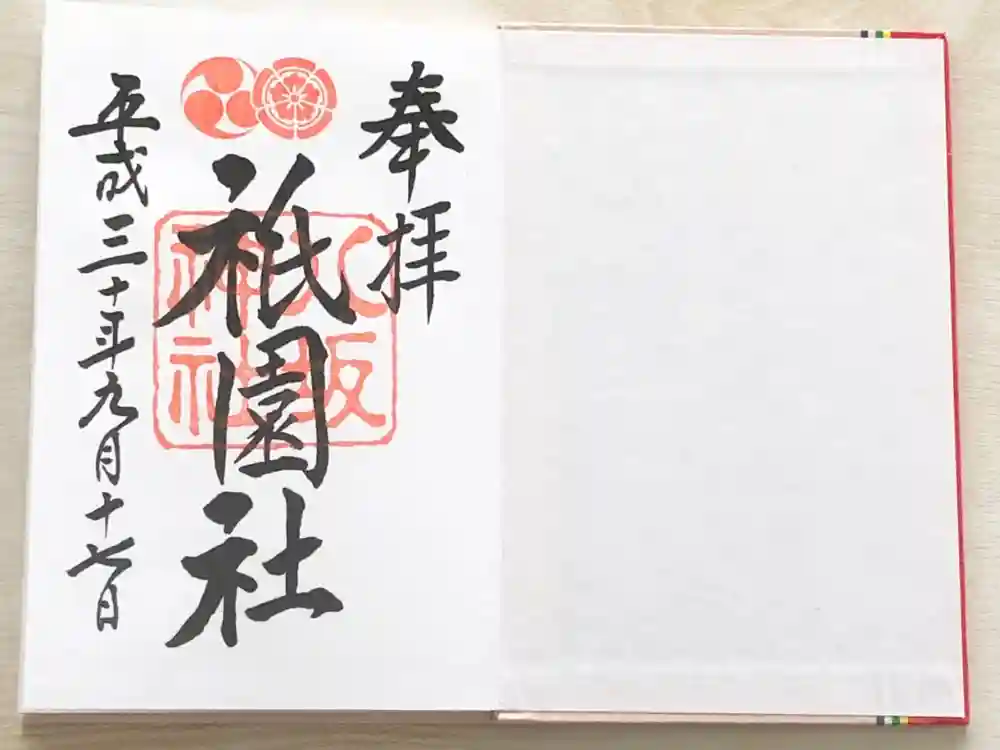 奉拝
祇園社
八坂
神社
平成三十年九月十七日